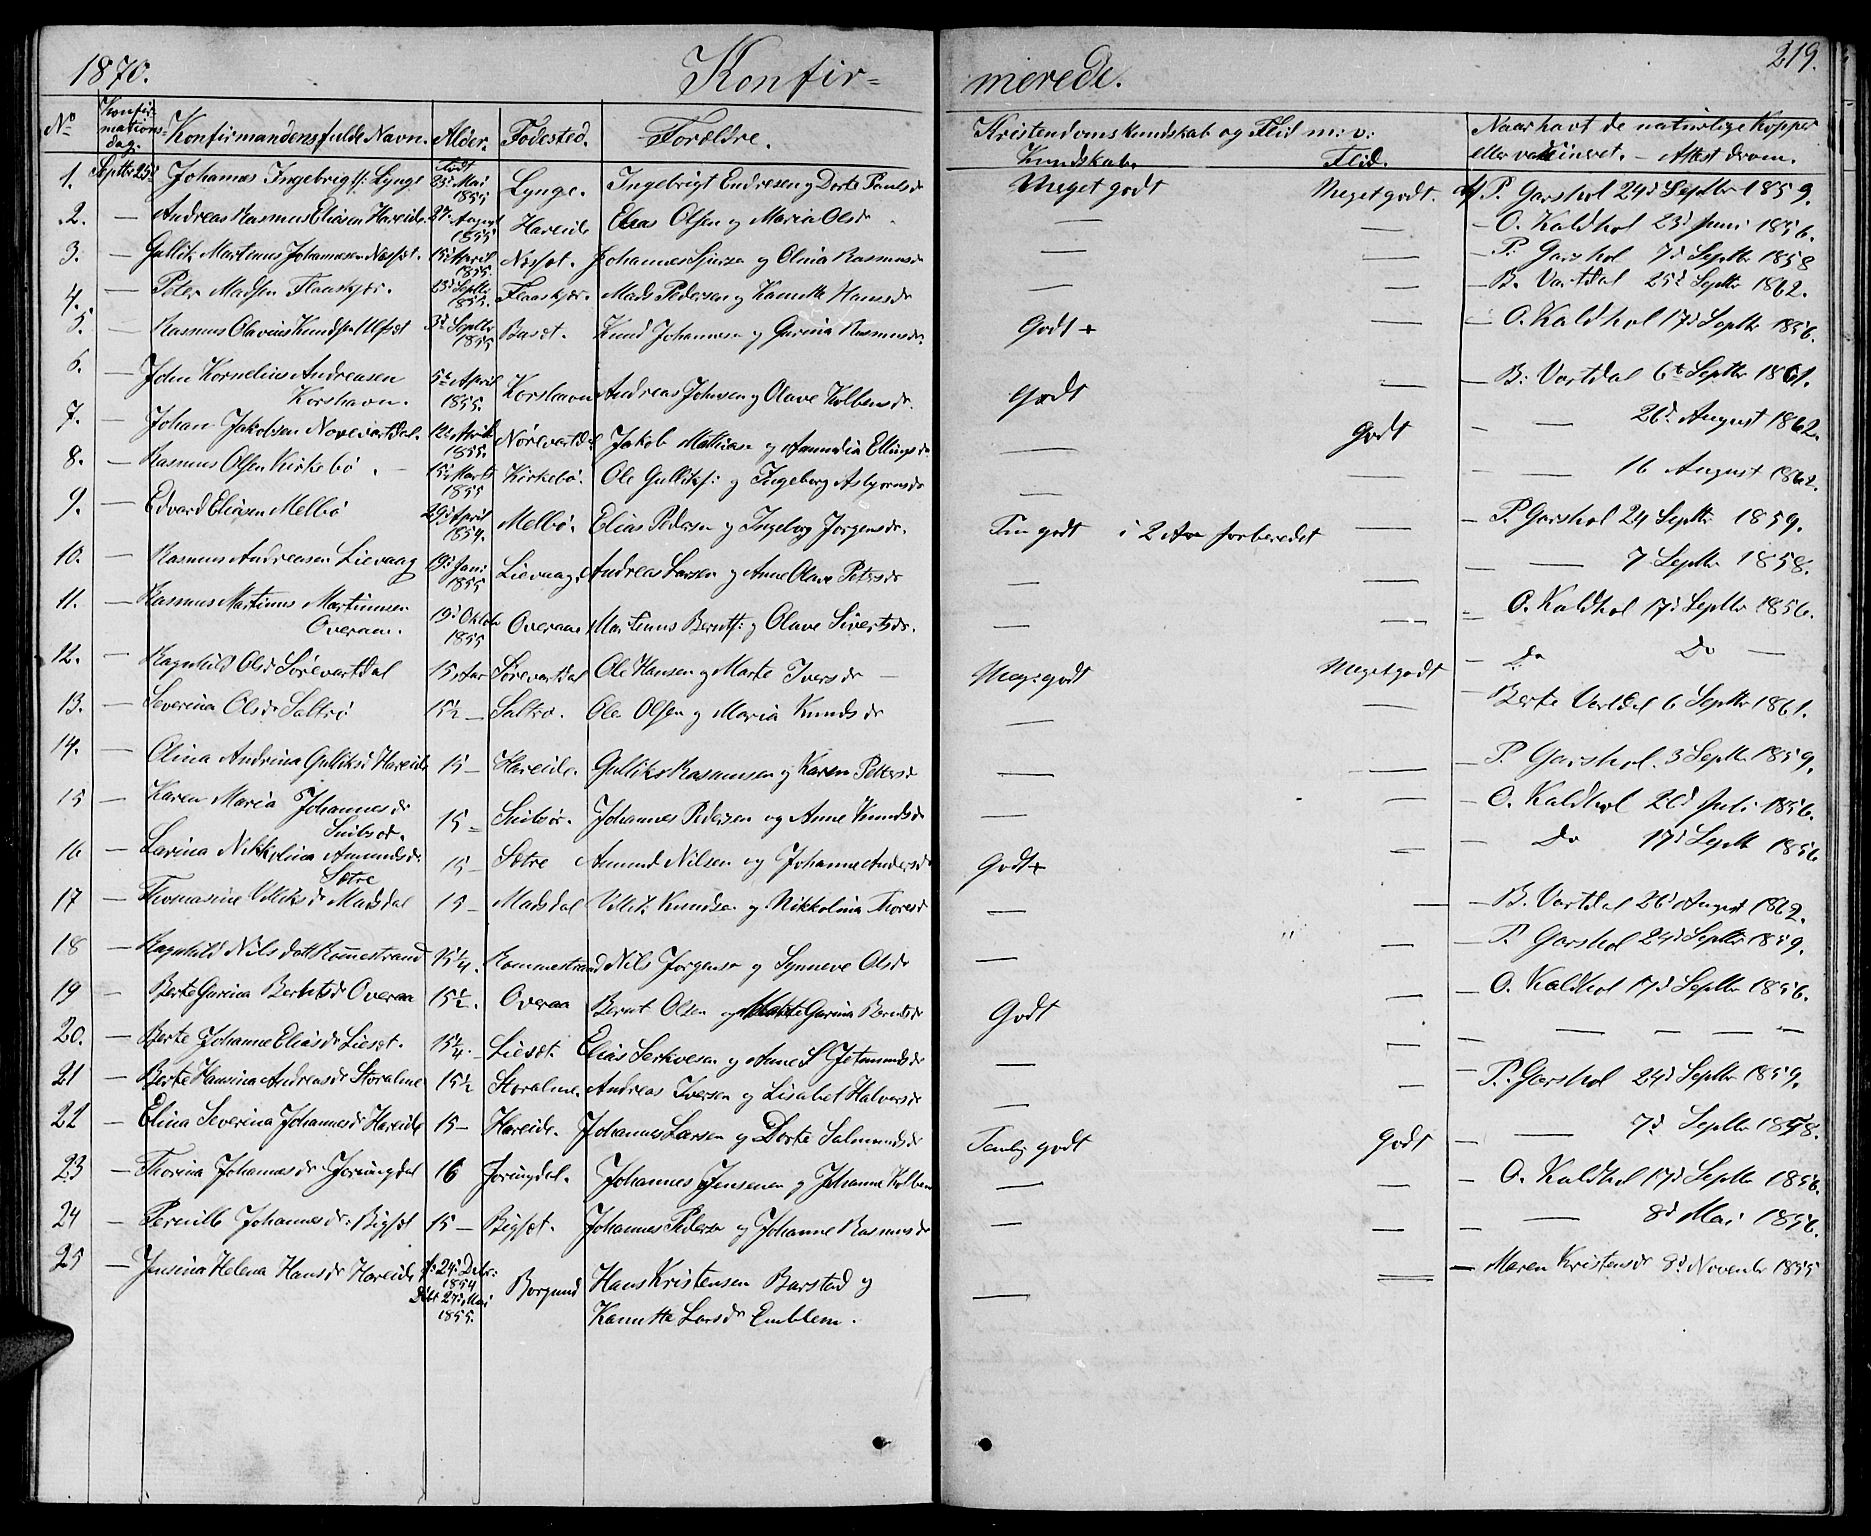 1870. Konfir= merede. 219.
No Konfirmations=dag. Konfirmandens fulde Navn. Alder. Fødested. Forældre. Kristendomskundskab og Flid m: v: Naar havt de naturlige Kopper
Kundskab. Flid. eller vaccineret. – Attest derom.
1. Septbr 25d Johannes Ingebrigts: Lynge født 23d Mai 1855 Lynge. Ingebrigt Endresen og Dorte Paulsdr Meget godt Meget godt. af P. Garshol 24d Septbr 1859.
2. — Andreas Rasmus Eliasen Hareide 27d August 1855 Hareide Elias Olsen og Maria Olsdr — — – O. Kaldhol 23d Juni 1856.
3. — Gullik Martinus Johannesen Næsset. 15d April 1855. Næsset. Johannes Sjursen og Olina Rasmusdr — — – P. Garshol 7d Septbr 1858
4. — Peter Madsen Flaaskjær. 23d Septbr 1855. Flaaskjær. Mads Pedersen og Hansdr — — – B. Vartdal 25d Septbr 1862.
5. — Rasmus Olavius Knudsen Ulfset 3d Septbr 1855 Knud Johannesen og Gurina Rasmusdr. Godt + — – O. Kaldhol 17d Septbr 1856.
6. — John Kornelius Andreasen Korshavn. 5te April 1855. Korshavn Andreas Johnsen og Olave Kolbensdr. Godt — – B: Vartdal 6te Septbr 1861.
7. — Johan Jakobsen Nørevartdal. 12te April 1855. Nørevartdal Jakob Mathiasen og Ellingsdr — Godt – — 26d August 1862.
8. — Rasmus Olsen Kirkebø. 15de Marts 1855 Kirkebø. Ole Gulliks: og Ingeborg Asbjørnsdr — — – — 16 August 1862.
9. — Edvard Eliasen Melbø 29d April 1854. Melbø. Elias Pedersen og Ingeborg Jørgensdr. godt i 2 Aar forberedet — – P. Garshol 24 Septbr 1859.
10. — Rasmus Andreasen Lievaag 19d Janr 1855 Lievaag. Andreas Larsen og Anne Olave Petersdr — — – — 7 Septbr 1858.
11. — Rasmus Martinus Martinusen Overaae. 19d Oktbr 1855 Overaae. Martinus Bernts: og Olave Sivertsdr. — — – O. Kaldhol 17d Septbr 1856.
12. — Ragnhild Olsdr Sørevartdal 15 Aar Sørevartdal Ole Hansen og Marte Iversdr — Meg: godt Meget godt – Do Do —
13. — Severina Olsdr Saltrø 15½ – Saltrø. Ole Olsen og Maria Knudsdr — — – Berte Vartdal 6 Septbr 1861.
14. — Olina Andrina Gulliksd Hareide 15 – Hareide. Gullik Rasmusen og Karen Pettersdr — — – P. Garshol. 3 Septbr 1859.
15 — Karen Maria Johannesdr Snibsør. 15 – Snibsør. Johannes Pedersen og Anne Knudsdr — — – O. Kaldhol 20d Juli 1856.
16 — Larina Nikkoline Amundsdr Sætre 15 – Sætre Amund Nilsen og Johanne Andersdr Godt+ — – Do 17d Septbr 1856
17 — Thomasine Villiksdr Madsdal 15 – Madsdal Villik Knudsen og Nikkolina Thoresdr — — – B. Vartdal 26d August 1862.
18 — Ragnhild Nilsdatt Rømmestrand 15¼. Rømmestrand Nils Jørgensen og Synneve Olsdr — — – P. Garshol 24d Septbr 1859.
19 — Berte Gurina Berntsdr Overaa 15½. Overaa Bernt Olsen og Marte Gurina Berntsdr Godt — – O. Kaldhol 17d Septbr 1856.
20. — Berte Johanne Eliasdr Liesæt. 15¼. Liesæt. Elias og Anne L Jetmundsdr — — — — — —
21 — Berte Hansina Andreasdr Storalme 15½ Storalme. Andreas Iversen og Lisabet Halvorsdr — — – P. Garshol 24d Septbr 1859.
22 — Elina Severina Johannesdr Hareide 15 – Hareide. Johannes Larsen og Dorte Salmundsdr Temlig godt Godt – — 7d Septbr 1858.
23 — Thorina Johannesdr Jøringdal 16 Jøringdal. Johannes Jensen og Johanne Kolbens — — – O. Kaldhol 17d Septbr 1856.
24 — Pernille Johannesdr: Bigset 15 – Bigset. Johannes Peders og Johanne Rasmusdr — — – — 8d Mai 1856.
25 — Jensina Helena Hansdr Hareide f: 24d Decbr: 1854 Døbt 27d Mai 1855. Borgund Hans Kristensen Barstad og — — — Maren Kristensdr 8d Novembr 1855
Larsdr Emblem.